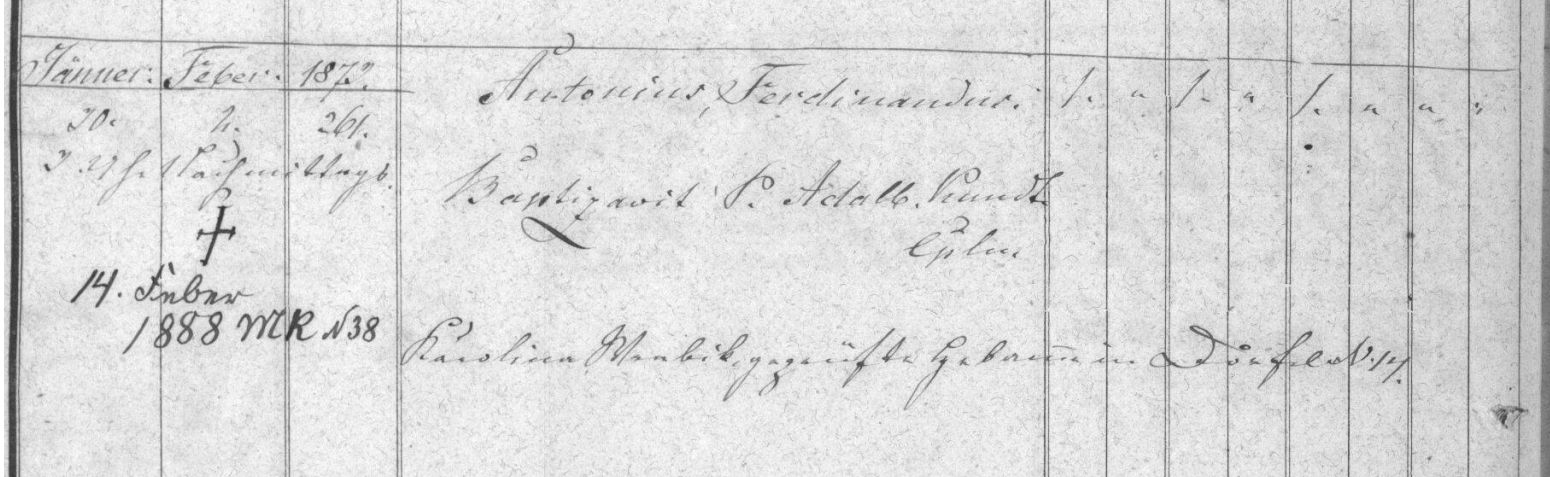 Jänner. Feber. 1872.
30. 2. 261.
3. Uhr Nachmittags.
14. Feber
1888 MR N38
Antonius, Ferdinandus. /. " /. " /. " " "
Baptizavit P. Adalb. Kundt
Cplan
Karolina geprüfte Hebamme in Dörfel N. 14.